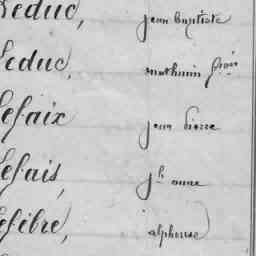 Leduc, jean baptiste
Leduc, mathurin fcois
Lefaix jean pierre
Lefais, jh anne
Lefebre, alphonse